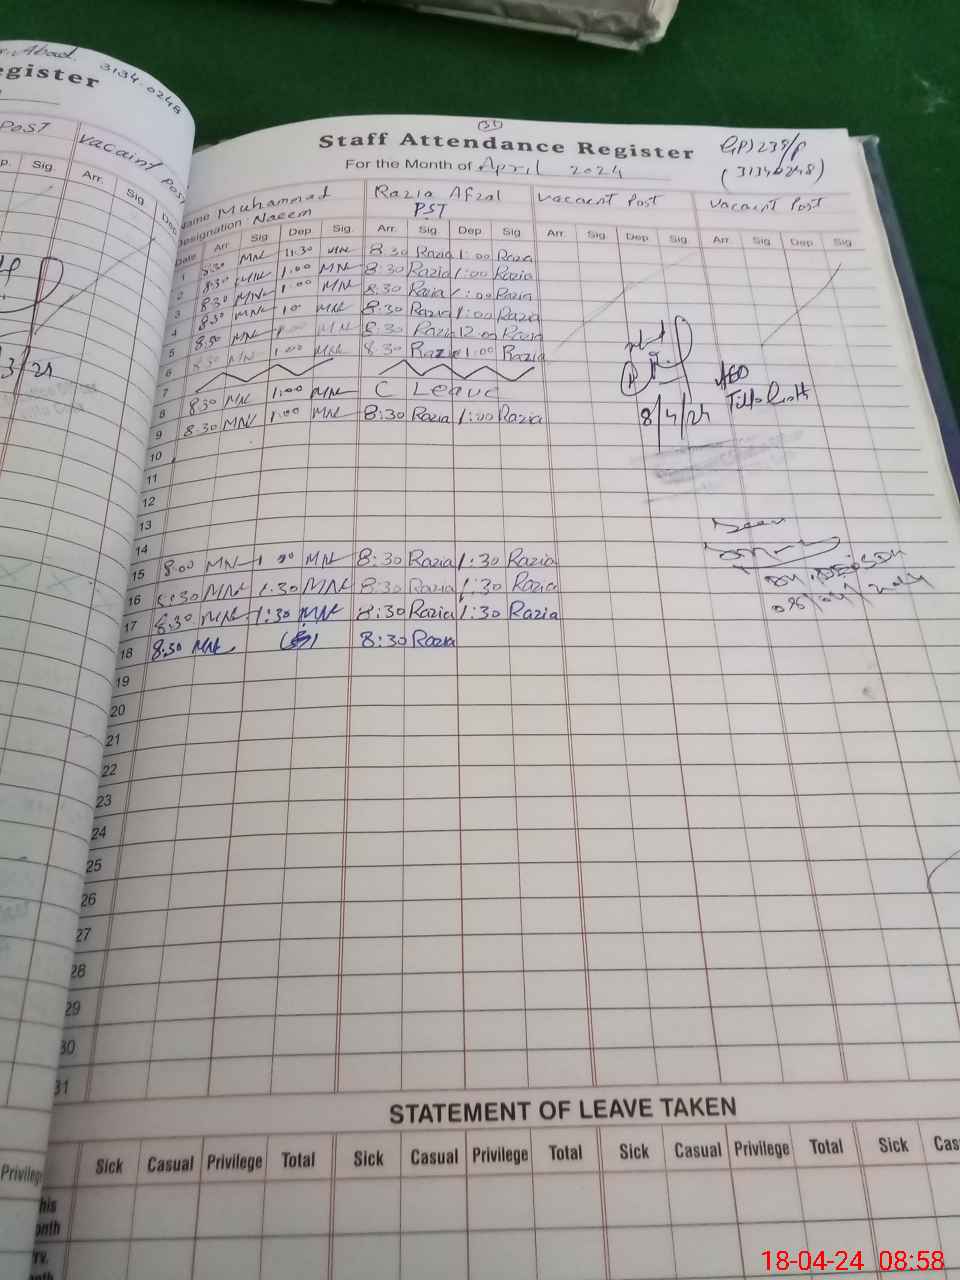 3134-0248
egister
Post
Vacaint Post
p. Sig. Arr. Sig Dep.
Staff Attendance Register
For the Month of April 2024
(31340248)
Name Muhammad Razia Afzal Vacaent Post Vacaint Post
Designation: Naeem PST
Date Arr. Sig Dep Sig. Arr. Sig Dep Sig. Arr. Sig. Dep Sig. Arr. Sig. Dep. Sig
1 8:30 MNL 11:30 MNL 8:30 Razia 1:00 Razia
2 8:30 MNL 1:00 MNL 8:30 Razia 1:00 Razia
3 8:30 MNL 1:00 MNL 8:30 Razia 1:00 Razia
4 8:30 MNL MNL 8:30 Razia 1:00 Razia
5 8:30 MNL MNL 8:30 Razia 12:00 Razia
6 8:30 MNL 1:00 MNL 8:30 Razia 1:00 Razia
7
8 8:30 MNL 1:00 MNL C Leave
9 8:30 MNL 1:00 MNL 8:30 Razia 1:00 Razia
8/4/24
AEO
10
11
12
13
14
15 8:00 MNL 1:00 MNL 8:30 Razia 1:30 Razia
16 8:30 MNL 1:30 MNL 8:30 Razia 1:30 Razia
17 8:30 MNL 1:30 MNL 8:30 Razia 1:30 Razia
18 8:30 MNL 8:30 Razia
19
20
21
22
23
24
25
26
27
28
29
30
31
STATEMENT OF LEAVE TAKEN
Privileg Sick Casual Privilege Total Sick Casual Privilege Total Sick Casual Privilege Total Sick Cas
his
onth
rv.
onth
18-04-24 08:58